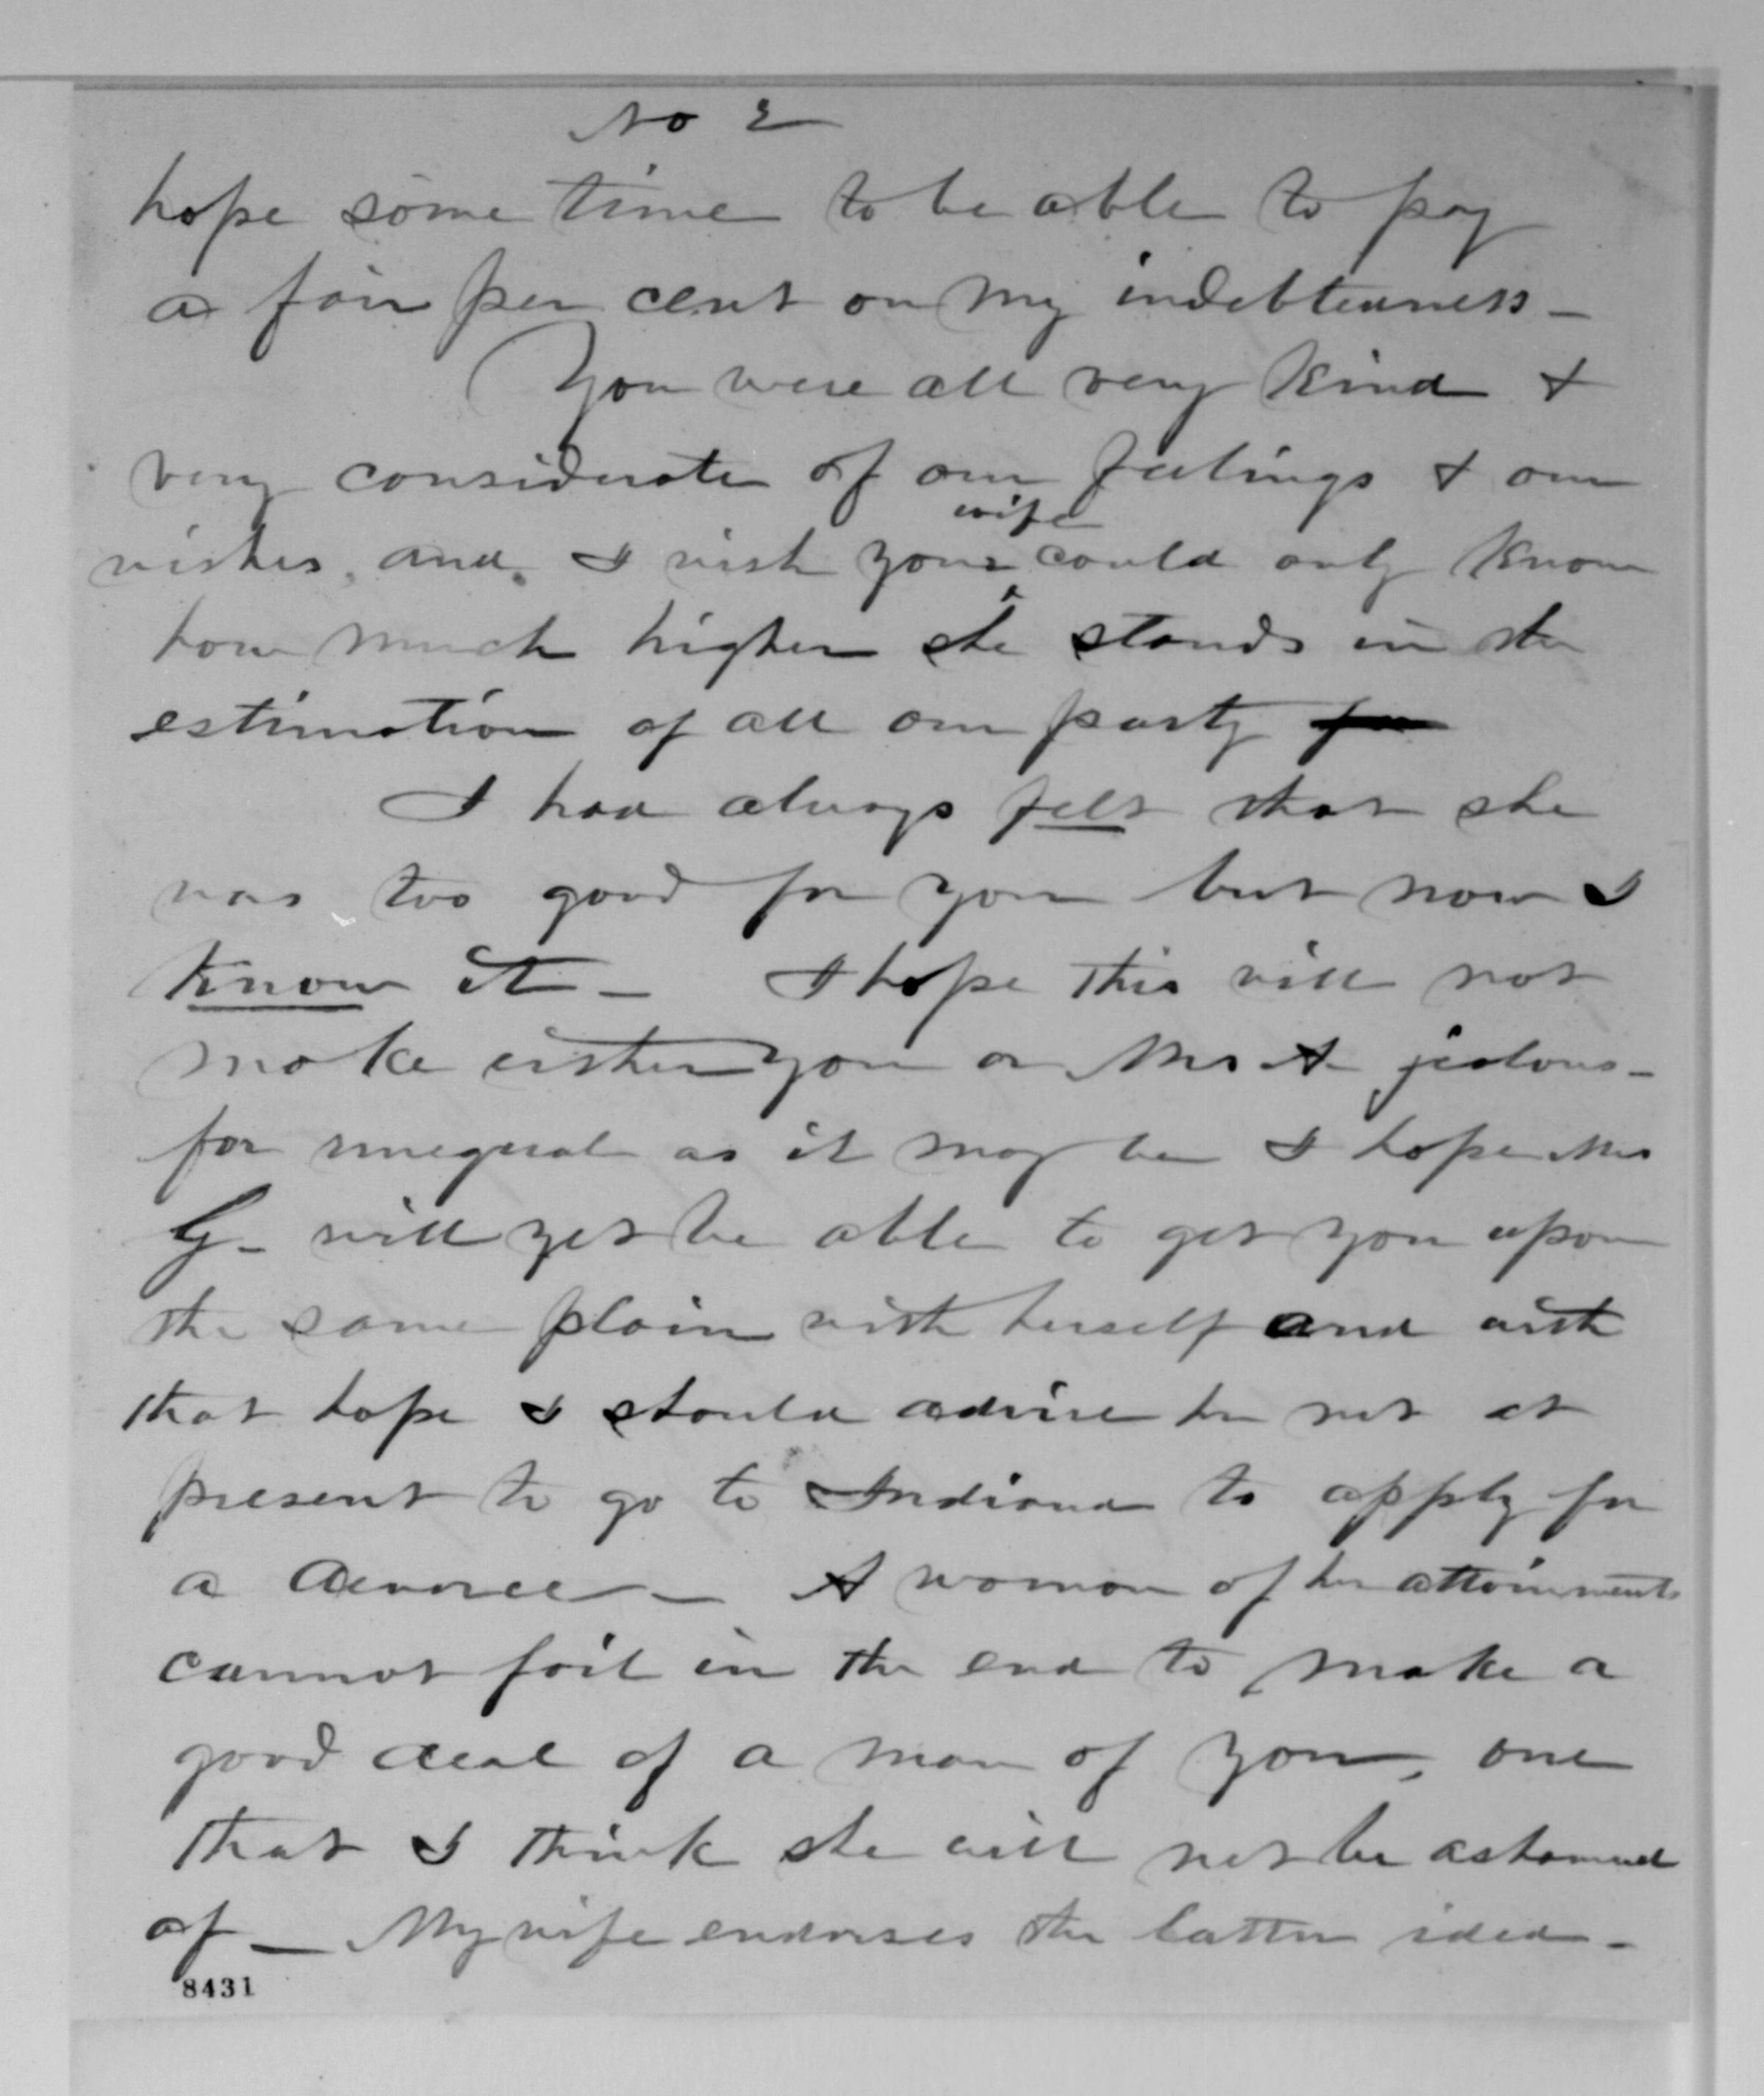 No 2
hope some time to be able to pay
a fair per cent on my indebtedness -
You were all very kind &
very considerate of our feelings & our
wishes, and, I wish your wife could only know
how much higher she stands in the
estimation of all our party for
I had always felt that she
was too good for you but now I
know it - I hope this will not
make either you or Mrs A- jealous -
for unequal as it may be I hope Mrs
G- will yet be able to get you upon
the same plain with herself and with
that hope I should advise her not at
present to go to Indiana to apply for
a divorce - A woman of her attainments
cannot fail in the end to make a
good deal of a man of you, one
that I think she will not be ashamed
of - My wife endorses the latter idea -
8431